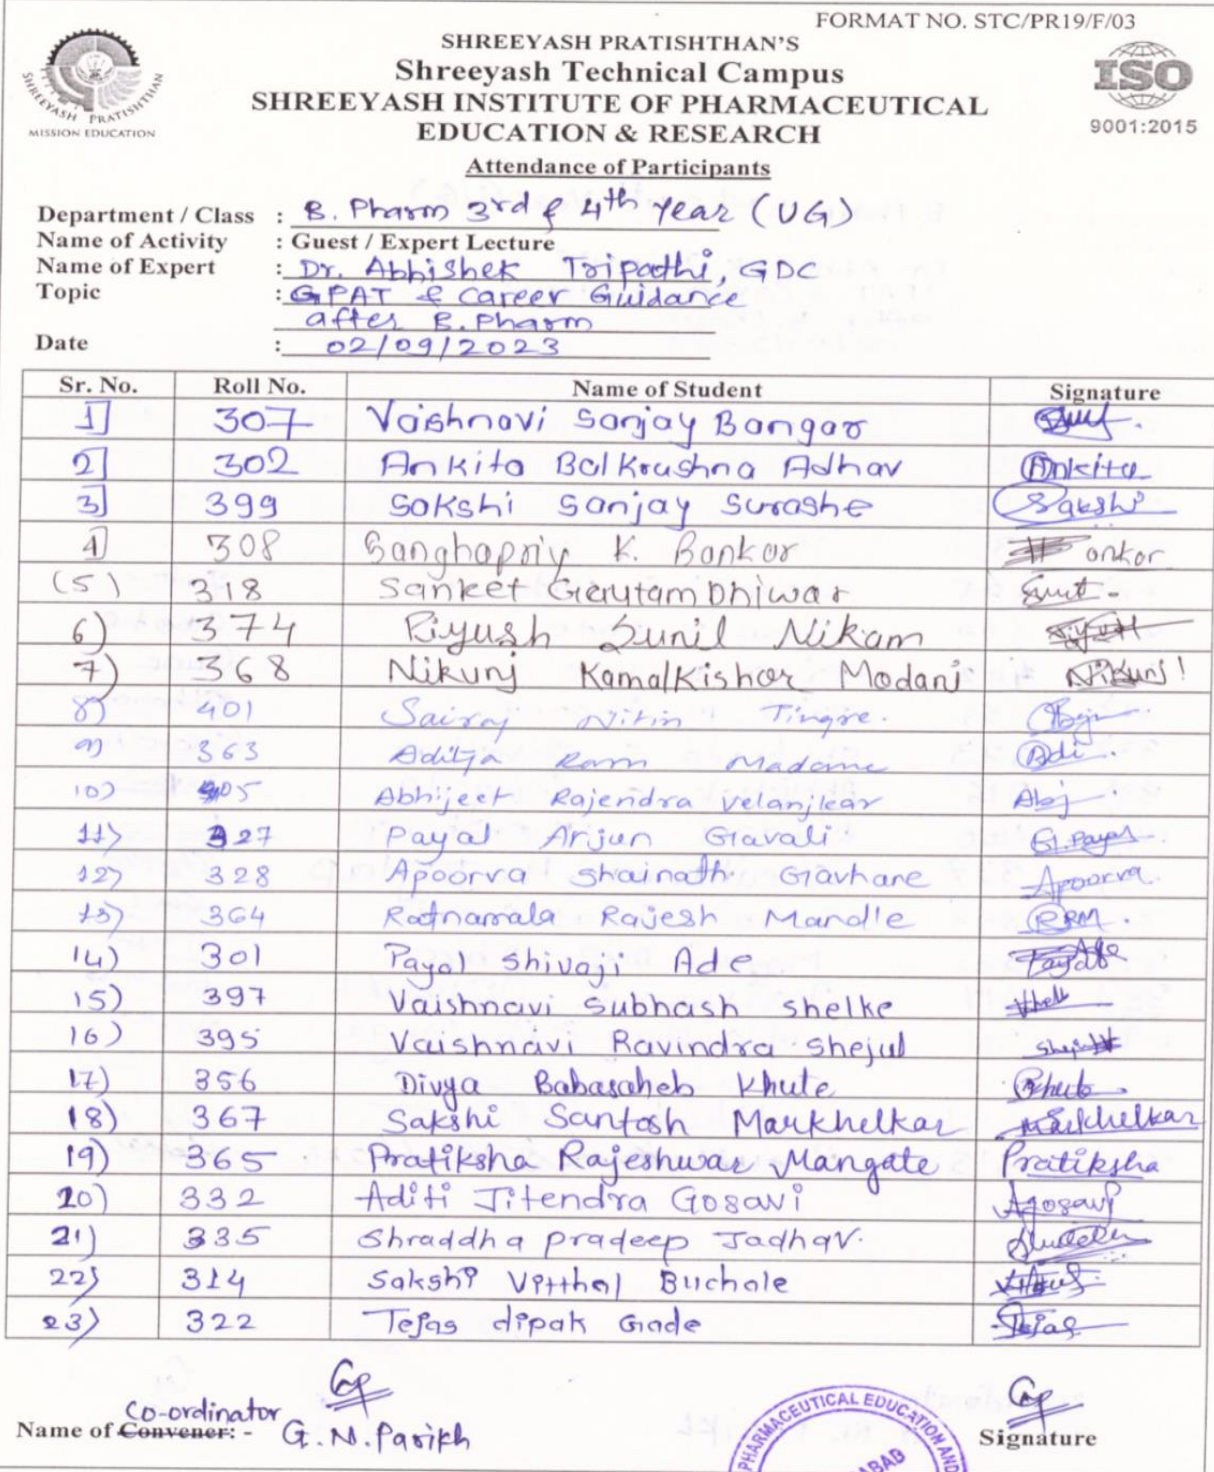 FORMAT NO. STC/PR19/F/03
SHREEYASH PRATISHTHAN
MISSION EDUCATION
ISO
9001:2015
SHREEYASH PRATISHTHAN'S
Shreeyash Technical Campus
SHREEYASH INSTITUTE OF PHARMACEUTICAL
EDUCATION & RESEARCH
Attendance of Participants
Department / Class : B. Pharm 3rd & 4th Year (UG)
Name of Activity : Guest / Expert Lecture
Name of Expert : Dr. Abhishek Tripathi, GDC
Topic : GPAT & Career Guidance
after B.Pharm
Date : 02/09/2023
Sr. No. Roll No. Name of Student Signature
1] 307 Vaishnavi Sanjay Bangar
2] 302 Ankita Balkrushna Adhav Ankita
3] 399 Sakshi Sanjay Surashe Sakshi
4] 308 Sanghapriy K. Bankar
(5) 318 Sanket Gautam Dhiwar
6) 374 Piyush Sunil Nikam
7) 368 Nikunj Kamalkishor Modani Nikunj!
8) 401 Sairaj Nitin Tingre.
9) 363 Aditya Ram Madame Adi.
10) 405 Abhijeet Rajendra Velanjkar Abj
11) 327 Payal Arjun Gavali G.Payal
12) 328 Apoorva Shainath Gavhane Apoorva.
13) 364 Ratnamala Rajesh Mandle RRM.
14) 301 Payal Shivaji Ade
15) 397 Vaishnavi Subhash Shelke
16) 395 Vaishnavi Ravindra Shejul
17) 356 Divya Babasaheb Khute
18) 367 Sakshi Santosh Markhelkar Markhelkar
19) 365 Pratiksha Rajeshwar Mangate Pratiksha
20) 332 Aditi Jitendra Gosavi Agosavi
21) 335 Shraddha Pradeep Jadhav.
22) 314 Sakshi Vitthal Buchale
23) 322 Tejas dipak Gade Tejas
Co-ordinator
Name of Convener: - G. N. Parikh
Signature
PHARMACEUTICAL EDUCATION AND